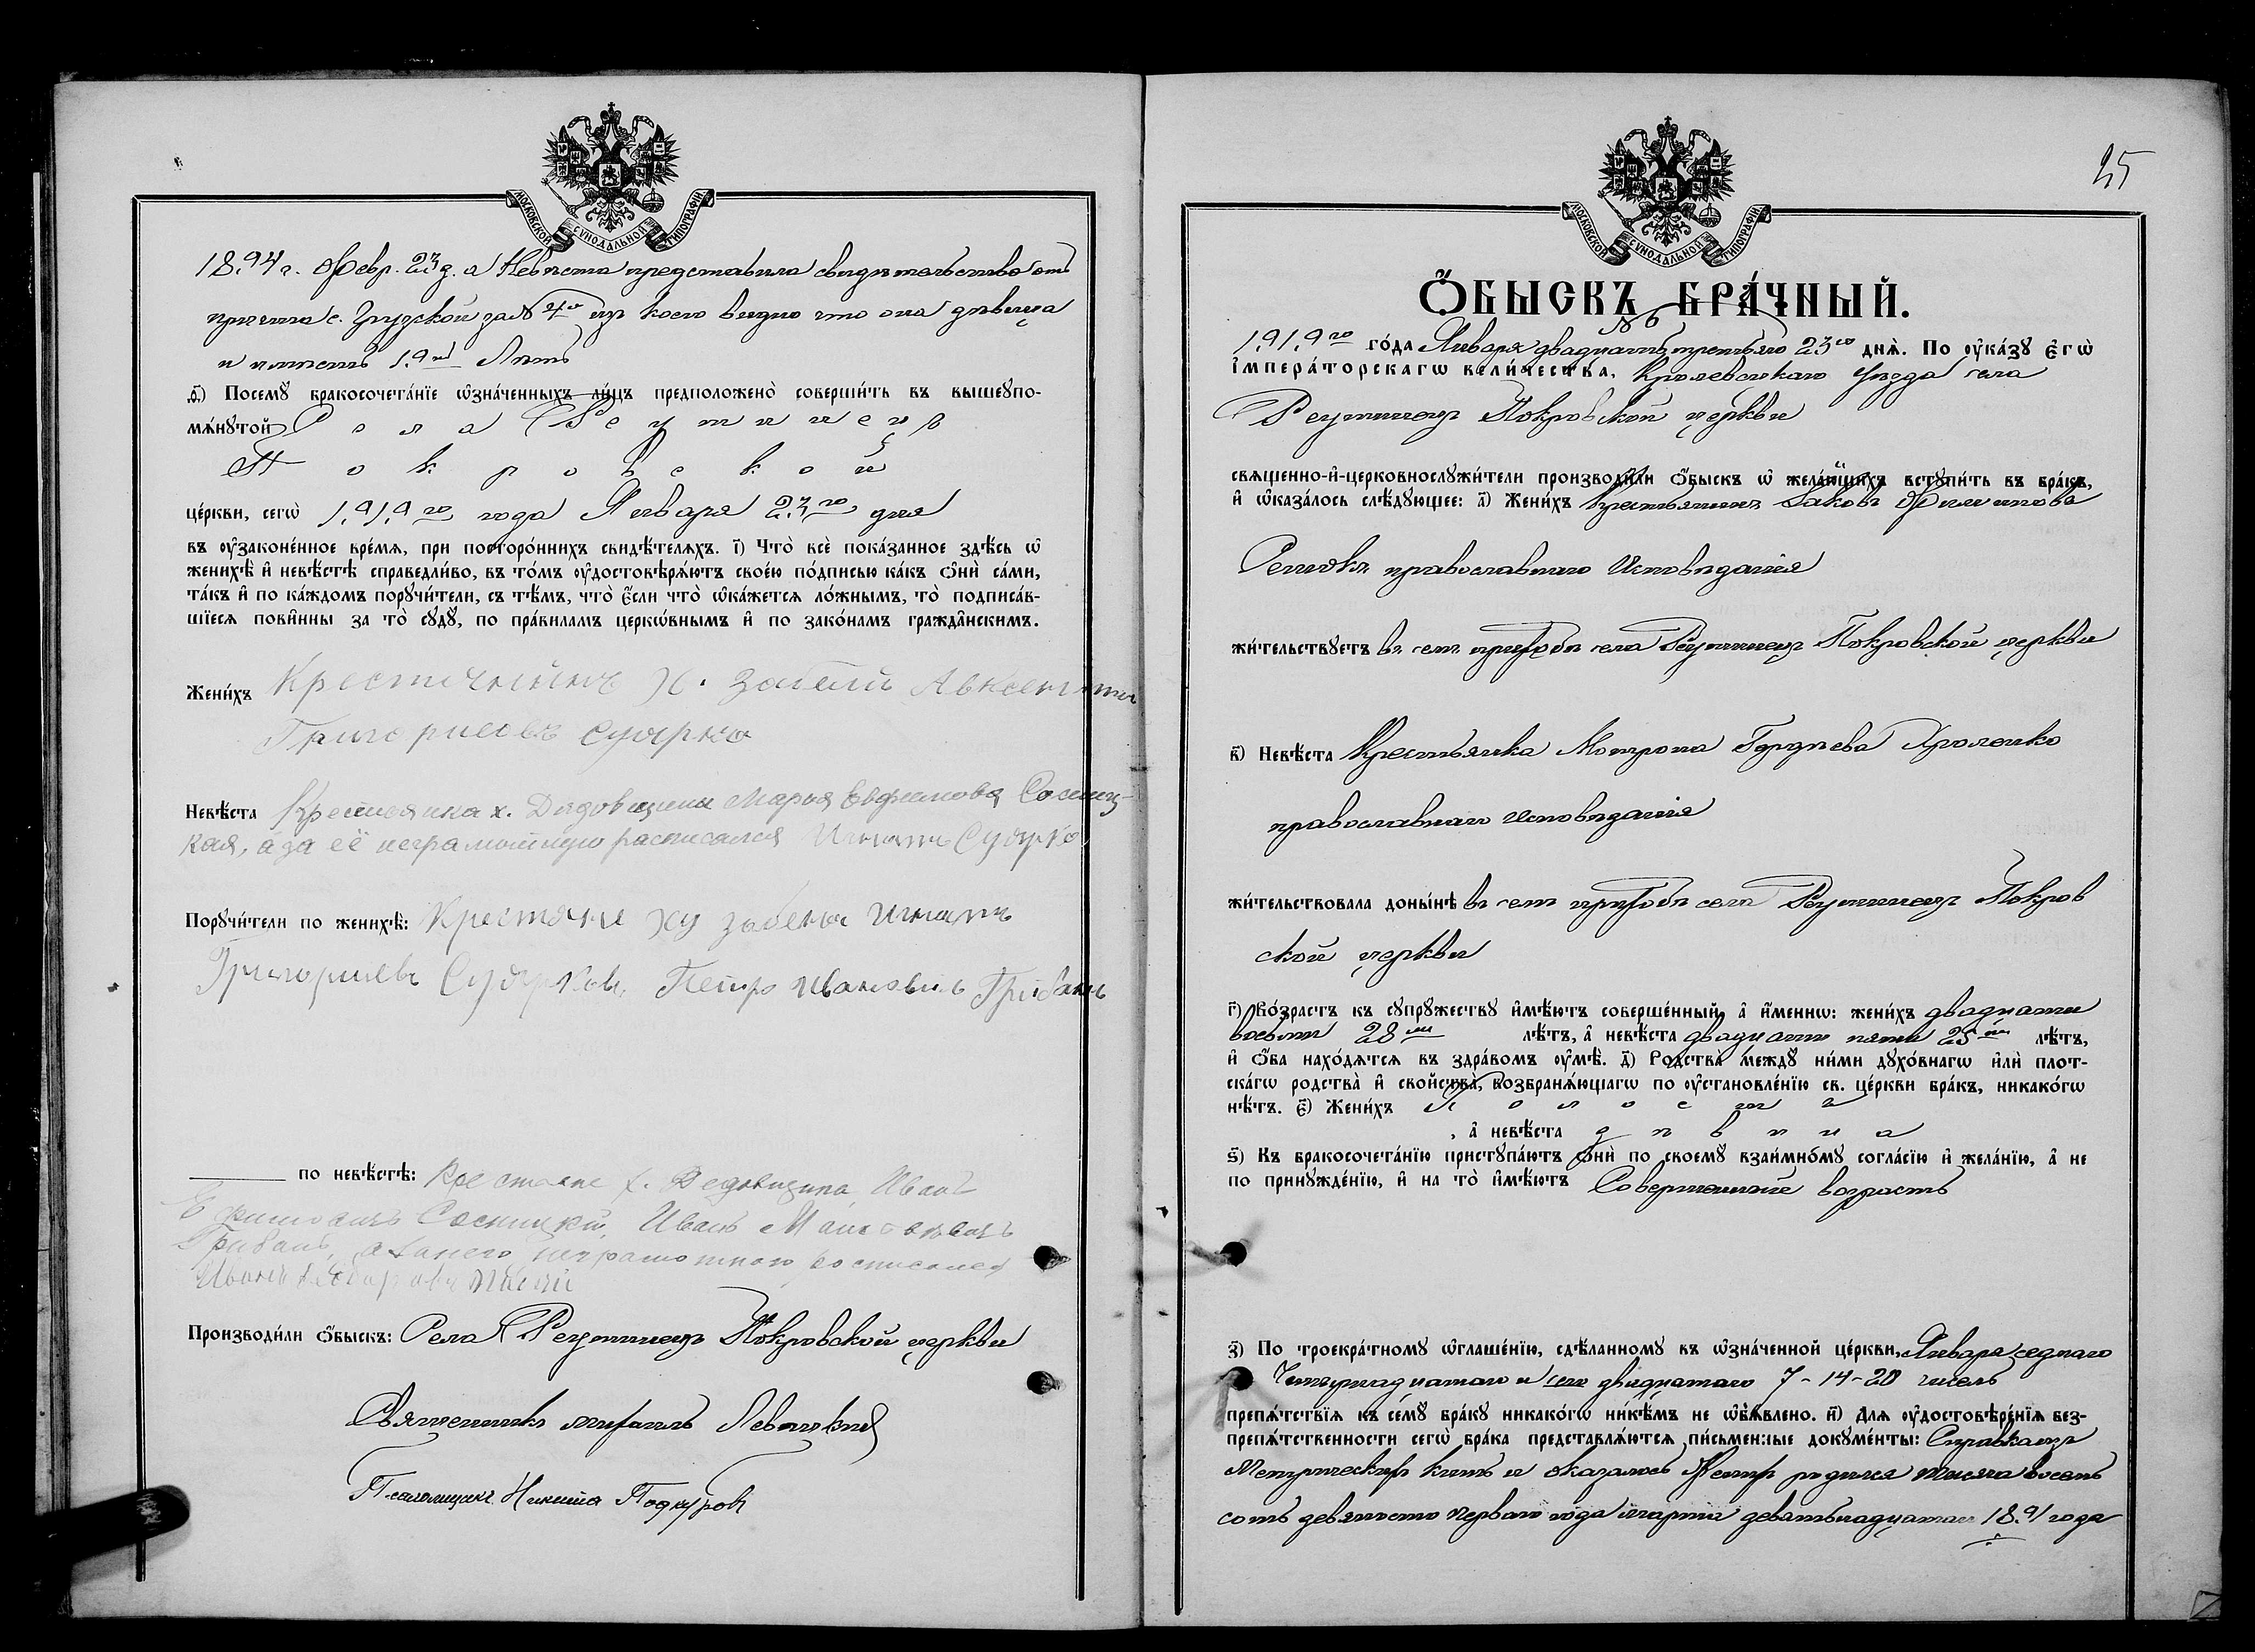 МОСКОВСКОЙ СѴНОДАЛЬНОЙ ТИПОГРАФІИ
1894 г. Февр. 23 д. а Невѣста представила свидѣтельство отъ
причта с. Грузской за № 4 изъ коего видно что она дѣвица
и имѣетъ 19 Лѣтъ
д҃і) Посемꙋ̀ бракосочета́нїе ѡ҆зна́ченныхъ ли́цъ предположено̀ соверши́ть въ вышеꙋпо-
мѧ́нꙋтой Села Реутинецъ
Покровской
це́ркви, сегѡ̀ 1919го года Января 23го дня
въ ᲂу҆законе́нное вре́мѧ, при посторо́ннихъ свидѣ́телѧхъ. і҃) Что̀ всѐ пока́занное здѣ́сь ѡ҆
женихѣ̀ и҆ невѣ́стѣ справедли́во, въ то́мъ ᲂу҆достовѣрѧ́ютъ свое́ю по́дписью ка́къ ѻ҆нѝ са́ми,
та́къ и҆ по ка́ждомъ порꙋчи́тели, съ тѣ́мъ, что̀ є҆́сли что̀ ѡ҆ка́жетсѧ ло́жнымъ, то̀ подписа́в-
шїесѧ пови́нны за то̀ сꙋдꙋ̀, по пра́виламъ церкѡ́внымъ и҆ по зако́намъ гражда̑нскимъ.
Жени́хъ
Григориевъ Сударко
Невѣ́ста Крестьянка х. Дѣдовщины Марья Евфимова Сосниц-
кая, а за её неграмотную расписался Игнатъ Сударко
Порꙋчи́тели по женихѣ̀: Крестяне Игнатъ
Григориевъ Петръ Ивановичъ Грибанъ
по невѣ́стѣ: Крестяне х. Иванъ
Сосницкій, Иванъ
Грибанъ, неграмотного росписался
Произвѡди́ли ѻ҆́быскъ: Села Реутинецъ Покровской церкви
Священникъ Михаилъ Левитскій
Псаломщикъ Никита
25
МОСКОВСКОЙ СѴНОДАЛЬНОЙ ТИПОГРАФІИ
Ѻ҆́БЫСКЪ БРА́ЧНЫЙ.
№ 6
1919го го́да Января двадцать третьяго 23го днѧ̀. По ᲂу҆ка́зꙋ Є҆гѡ̀
І҆мпера́торскагѡ вели́чества, Кролевецкаго Уѣзда села
Реутинецъ Покровской церкви
свѧще́нно-и҆-церковнослꙋжи́тели производи́ли ѻ҆́быскъ ѡ҆ жела́ющихъ встꙋпи́ть въ бра́къ,
и҆ ѡ҆каза́лось слѣ́дꙋющее: а҃) Жени́хъ Крестьянинъ Іаковъ Филипповъ
православнаго Исповѣданія
жи́тельствꙋетъ въ семъ приходѣ села Реутинецъ Покровской церкви
в҃) Невѣ́ста Крестьянка Матрона Гордѣева Хроленко
православнаго исповѣданія
жи́тельствовала доны́нѣ въ семъ приходѣ села Реутинецъ Покров
ской церкви
г҃) Во́зрастъ къ сꙋпрꙋ́жествꙋ и҆мѣ́ютъ соверше́нный, а҆ и҆́меннѡ: жени́хъ двадцати
восьми 28ми лѣ́тъ, а҆ невѣ́ста двадцати пяти 25ти лѣ́тъ,
и҆ ѻ҆́ба нахо́дѧтсѧ въ здра́вомъ ᲂу҆мѣ̀. д҃) Родства̀ междꙋ̀ ни́ми дꙋхо́внагѡ и҆лѝ плот-
ска́гѡ родства̀ и҆ сво́йства̀, возбранѧ́ющагѡ по ᲂу҆становле́нїю св. це́ркви бра́къ, никако́гѡ
нѣ́тъ. є҃) Жени́хъ Холостъ
, а҆ невѣ́ста дѣвица
ѕ҃) Къ бракосочета́нїю пристꙋпа́ютъ ѻ҆нѝ по своемꙋ̀ взаи́мномꙋ согла́сїю и҆ жела́нїю, а҆ не
по принꙋжде́нїю, и҆ на то̀ и҆мѣ́ютъ Совершенный возрастъ
з҃) По троекра́тномꙋ ѡ҆глаше́нїю, сдѣ́ланномꙋ въ ѡ҆зна́ченной це́ркви, Января седмаго
Четырнадцатаго и двадцатаго 7-14-20 чиселъ
препѧ́тствїѧ къ семꙋ̀ бра́кꙋ никако́гѡ ни́кѣмъ не ѡ҆б̾ѧ́влено. и҃) Длѧ ᲂу҆достовѣре́нїѧ без-
препѧ́тственности сегѡ̀ бра́ка представлѧ́ютсѧ пи́сьменные докꙋме́нты: Справка изъ
Метрическихъ книгъ и оказалось Женихъ родился тысяча восемь
сотъ девяносто перваго года марта девятьнадцатаго 1891 года